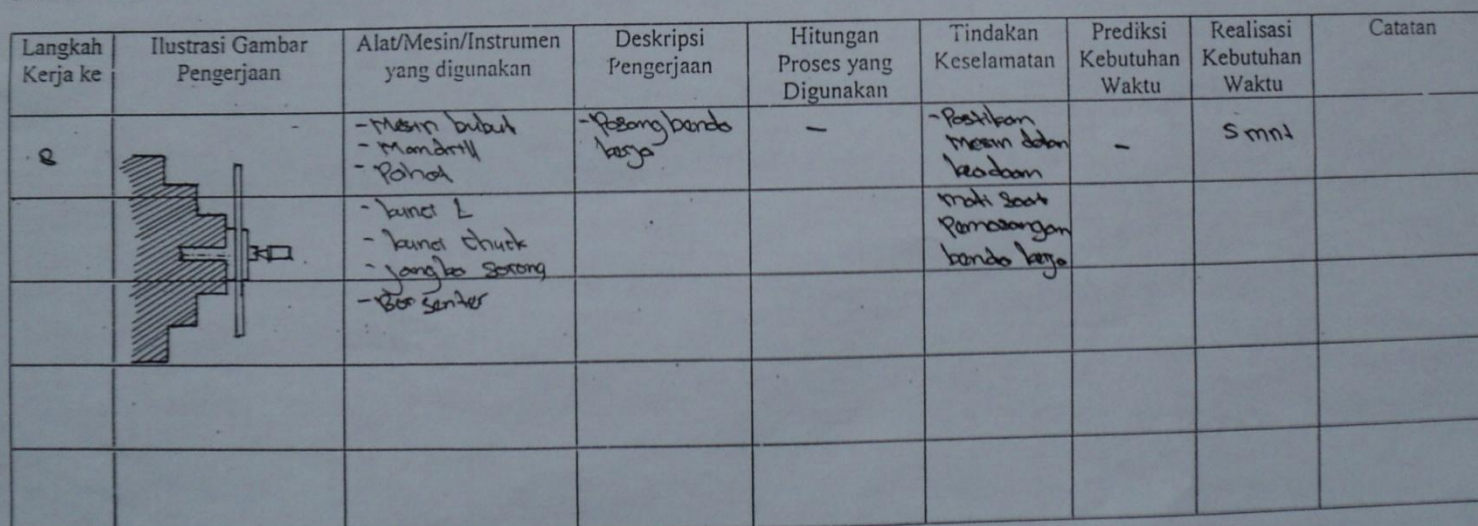 Langkah Kerja ke
Ilustrasi Gambar Pengerjaan
Alat/Mesin/Instrumen yang digunakan
Deskripsi Pengerjaan
Hitungan Proses yang Digunakan
Tindakan Keselamatan
Prediksi Kebutuhan Waktu
Realisasi Kebutuhan Waktu
Catatan
8
- Mesin bubut
- Mandrill
- Pahat
- kunci L
- kunci chuck
- Jangka Sorong
- Bor senter
- Pasang benda
kerja
-
- Pastikan
mesin dalam
keadaan
mati saat
Pemasangan
benda kerja
-
5 mnt